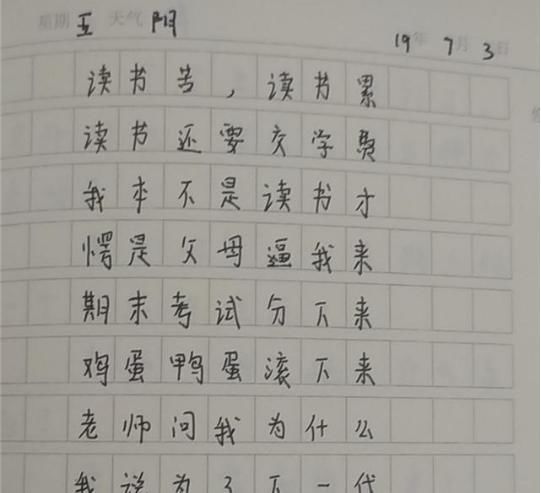 星期五 天气阴 19年7月3日
读书苦，读书累
读书还要交学费
我本不是读书才
愣是父母逼我来
期末考试分下来
鸡蛋鸭蛋滚下来
老师问我为什么
我说为了下一代